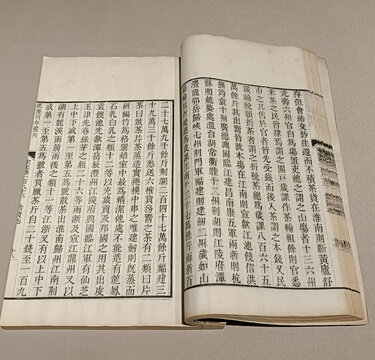 存但會給交抄往還而不積茶貨在淮南則蘄黃廬舒
光壽六州官自為場置吏總之謂之山場者十三六州
采茶之民皆隸焉謂之園戶歲課作茶輸租餘則官悉
市之其售於官者皆先受錢而後入茶謂之本錢又民
歲輸稅願折茶者謂之折稅茶總為歲課八百六十五
萬餘斤其出鬻皆就本場在江南則宣歙江池饒信洪
撫筠袁十州廣德興國臨江建昌南康五軍兩浙則杭
蘇明越婺處溫台湖常衢睦十二州荊湖則江陵府潭
澧鼎鄂岳歸峽七州荊門軍福建則建劍二州歲如山
場輸租折稅總為歲課江南千二十七萬餘斤兩浙百
二十七萬九千餘斤荊湖二百四十七萬餘斤福建三
十九萬三千餘斤悉送六榷貨務鬻之茶有二類曰片
茶曰散茶片茶蒸造實棬模中串之唯建劍則既蒸而
研編竹為格置焙室中最為精潔他處不能造有龍鳳
石乳白乳之類十二等以充歲貢及邦國之用其出虔
袁饒池光歙潭岳辰澧州江陵府興國臨江軍有仙芝
玉津先春綠芽之類二十六等兩浙及宣江鼎州又以
上中下或第一至第五為號散茶出淮南歸州江南荊
湖有龍溪雨前雨後之類十一等江浙又有以上中下
或第一至第五為號者買臘茶斤自二十錢至一百九